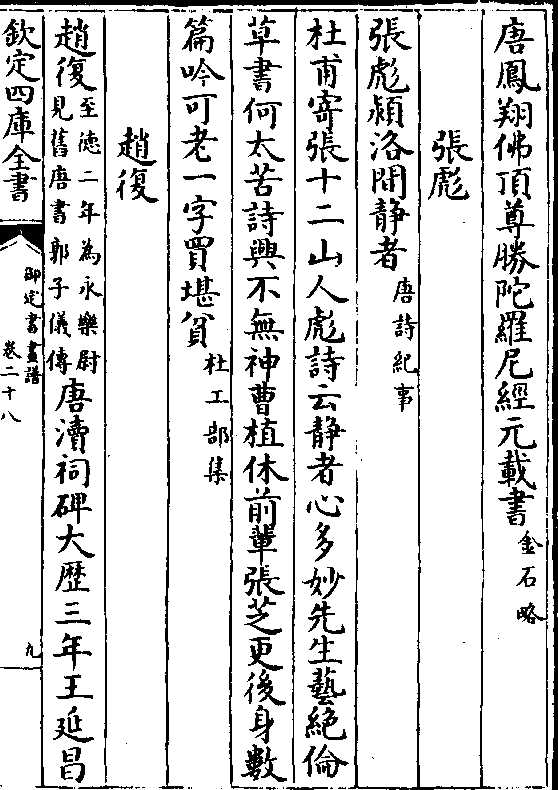 唐鳳翔佛頂尊勝陀羅尼經元載書金石略
張彪
張彪潁洛間靜者唐詩紀事
杜甫寄張十二山人彪詩云靜者心多妙先生藝絶倫
草書何太苦詩興不無神曹植休前輩張芝更後身數
篇吟可老一字買堪貧杜工部集
趙復
趙復至德二年為永樂尉見舊唐書郭子儀傳唐瀆祠碑大歴三年王延昌
欽定四庫全書
御定書畫譜
卷二十八
九